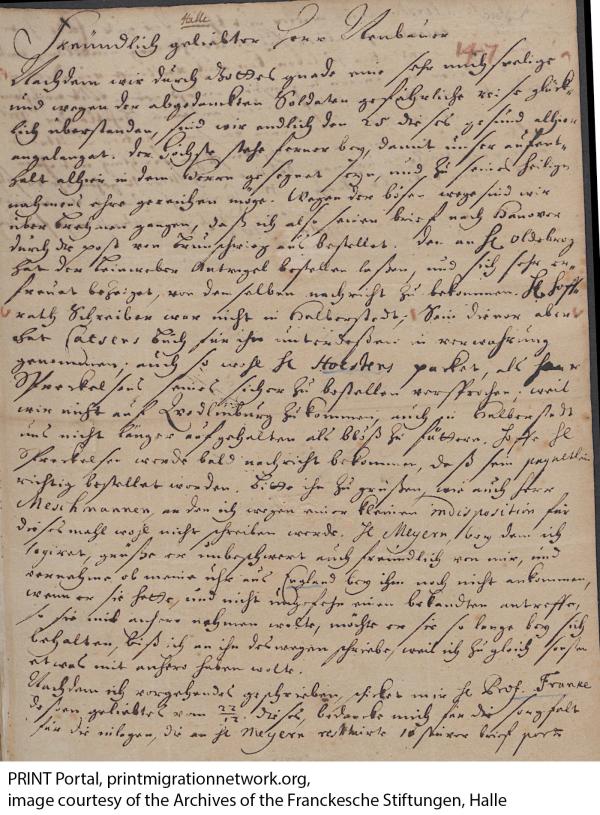 Halle
Freündlich geliebter Herr Neubauer
147
Nachdem wir durch Gottes gnade eine sehr müehselige
und wegen der abgedanckten Soldaten gefährliche reise glück-
lich überstanden, sind wir endlich den 25 dieses gesund alhier
angelanget. Der Höchste stehe ferner bey, damit unser aufent-
halt alhier in dem Herrn gesegnet seyn, und zu seines heiligen
nahmens ehre gereichen möge. Wegen der bösen wege sind wir
über Brehmen gangen, daß ich also einen brief nach Hanover
durch die post von Braunschweig aus bestellet. Den an H
hat der Leinweber bestellen laßen, und sich sehr er-
freuet bezeiget, von demselben nachricht zu bekommen. H Hoff-
rath Schreiber war nicht in Halberstedt; Sein diener aber
hat buch für ihn unterdeßen in verwahrung
genommen; auch so wohl H packet, als Herr
Spreckelsens eines sicher zu bestellen versprochen; weil
wir nicht auf Qvedlinburg zukommen, auch in Halberstedt
uns nicht länger aufgehalten als bloß zu füttern. Hoffe H
Spreckelsen werde bald nachricht bekommen, daß sein
richtig bestellet worden. Bitte ihn zu grüßen, wie auch Herr
an den ich wegen einer kleinen indisposition für
diesesmahl wohl nicht schreiben werde. H Meyern, bey dem ich
logiret, grüße er unbeschwert auch freundlich von mir, und
vernehme ob meine uhr aus England bey ihm noch nicht ankommen,
wenn er sie hette, und nicht ungefehr einen bekandten antreffe,
so sie mit anhero nehmen wolte, möchte er sie so lange bey sich
behalten, biß ich an ihn deswegen schriebe, weil ich zugleich sonsten
etwas mit anhero haben wolte.
Nachdem ich vorgehendes geschrieben, schicket mir H Prof. Francke
deßen geliebtes vom 22/12 dieses, bedancke mich für die sorgfalt
für die einlagen, die an H Meyern 10 stüver brief porto
PRINT Portal, printmigrationnetwork.org,
image courtesy of the Archives of the Franckesche Stiftungen, Halle